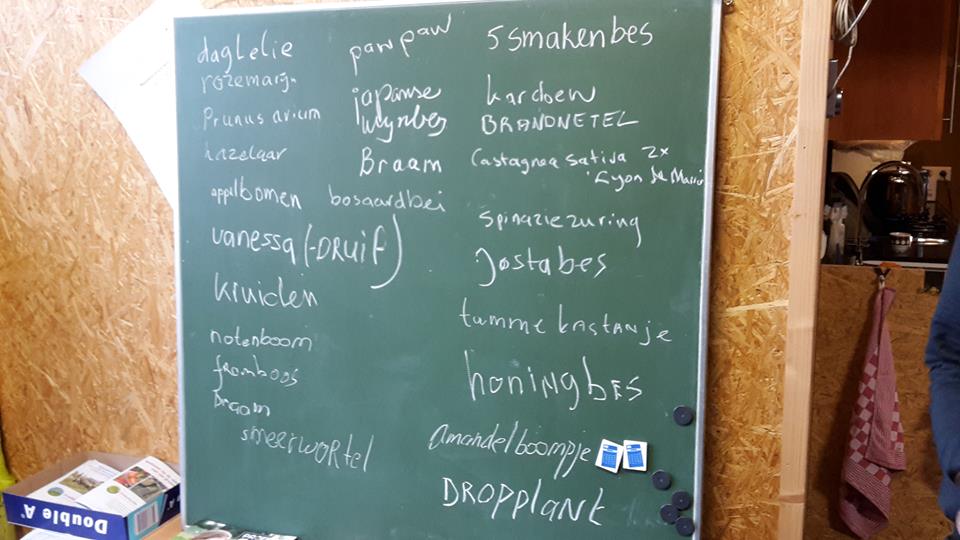 daglelie
rozemarijn
Prunus avium
hazelaar
appelbomen
vanessa (-DRUIF)
kruiden
notenboom
framboos
Braam
smeerwortel
pawpaw
japanse
wijnbes
Braam
bosaardbei
5smakenbes
kardoen
BRANDNETEL
Castagnea sativa 2x
spinaziezuring
Jostabes
tamme kastanje
honingbes
amandelboompje
DROPPLANT
Double A